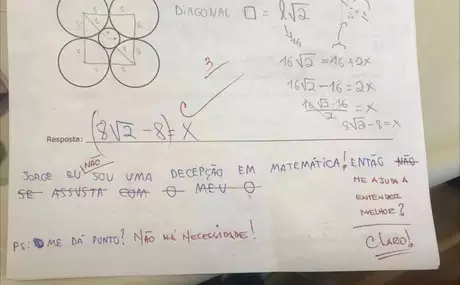 DIAGONAL □ = l√2
16
3
16√2 = 16 + 2x
16√2 - 16 = 2x
16√2 - 16 / 2 = x
8√2 - 8 = x
C
Resposta: (8√2 - 8) = x
JORGE EU NÃO SOU UMA DECEPÇÃO EM MATEMÁTICA! ENTÃO NÃO
SE ASSUSTA COM O MEU O
ME AJUDA A
ENTENDER
MELHOR?
CLARO!
PS: ME DÁ PONTO? NÃO HÁ NECESSIDADE!